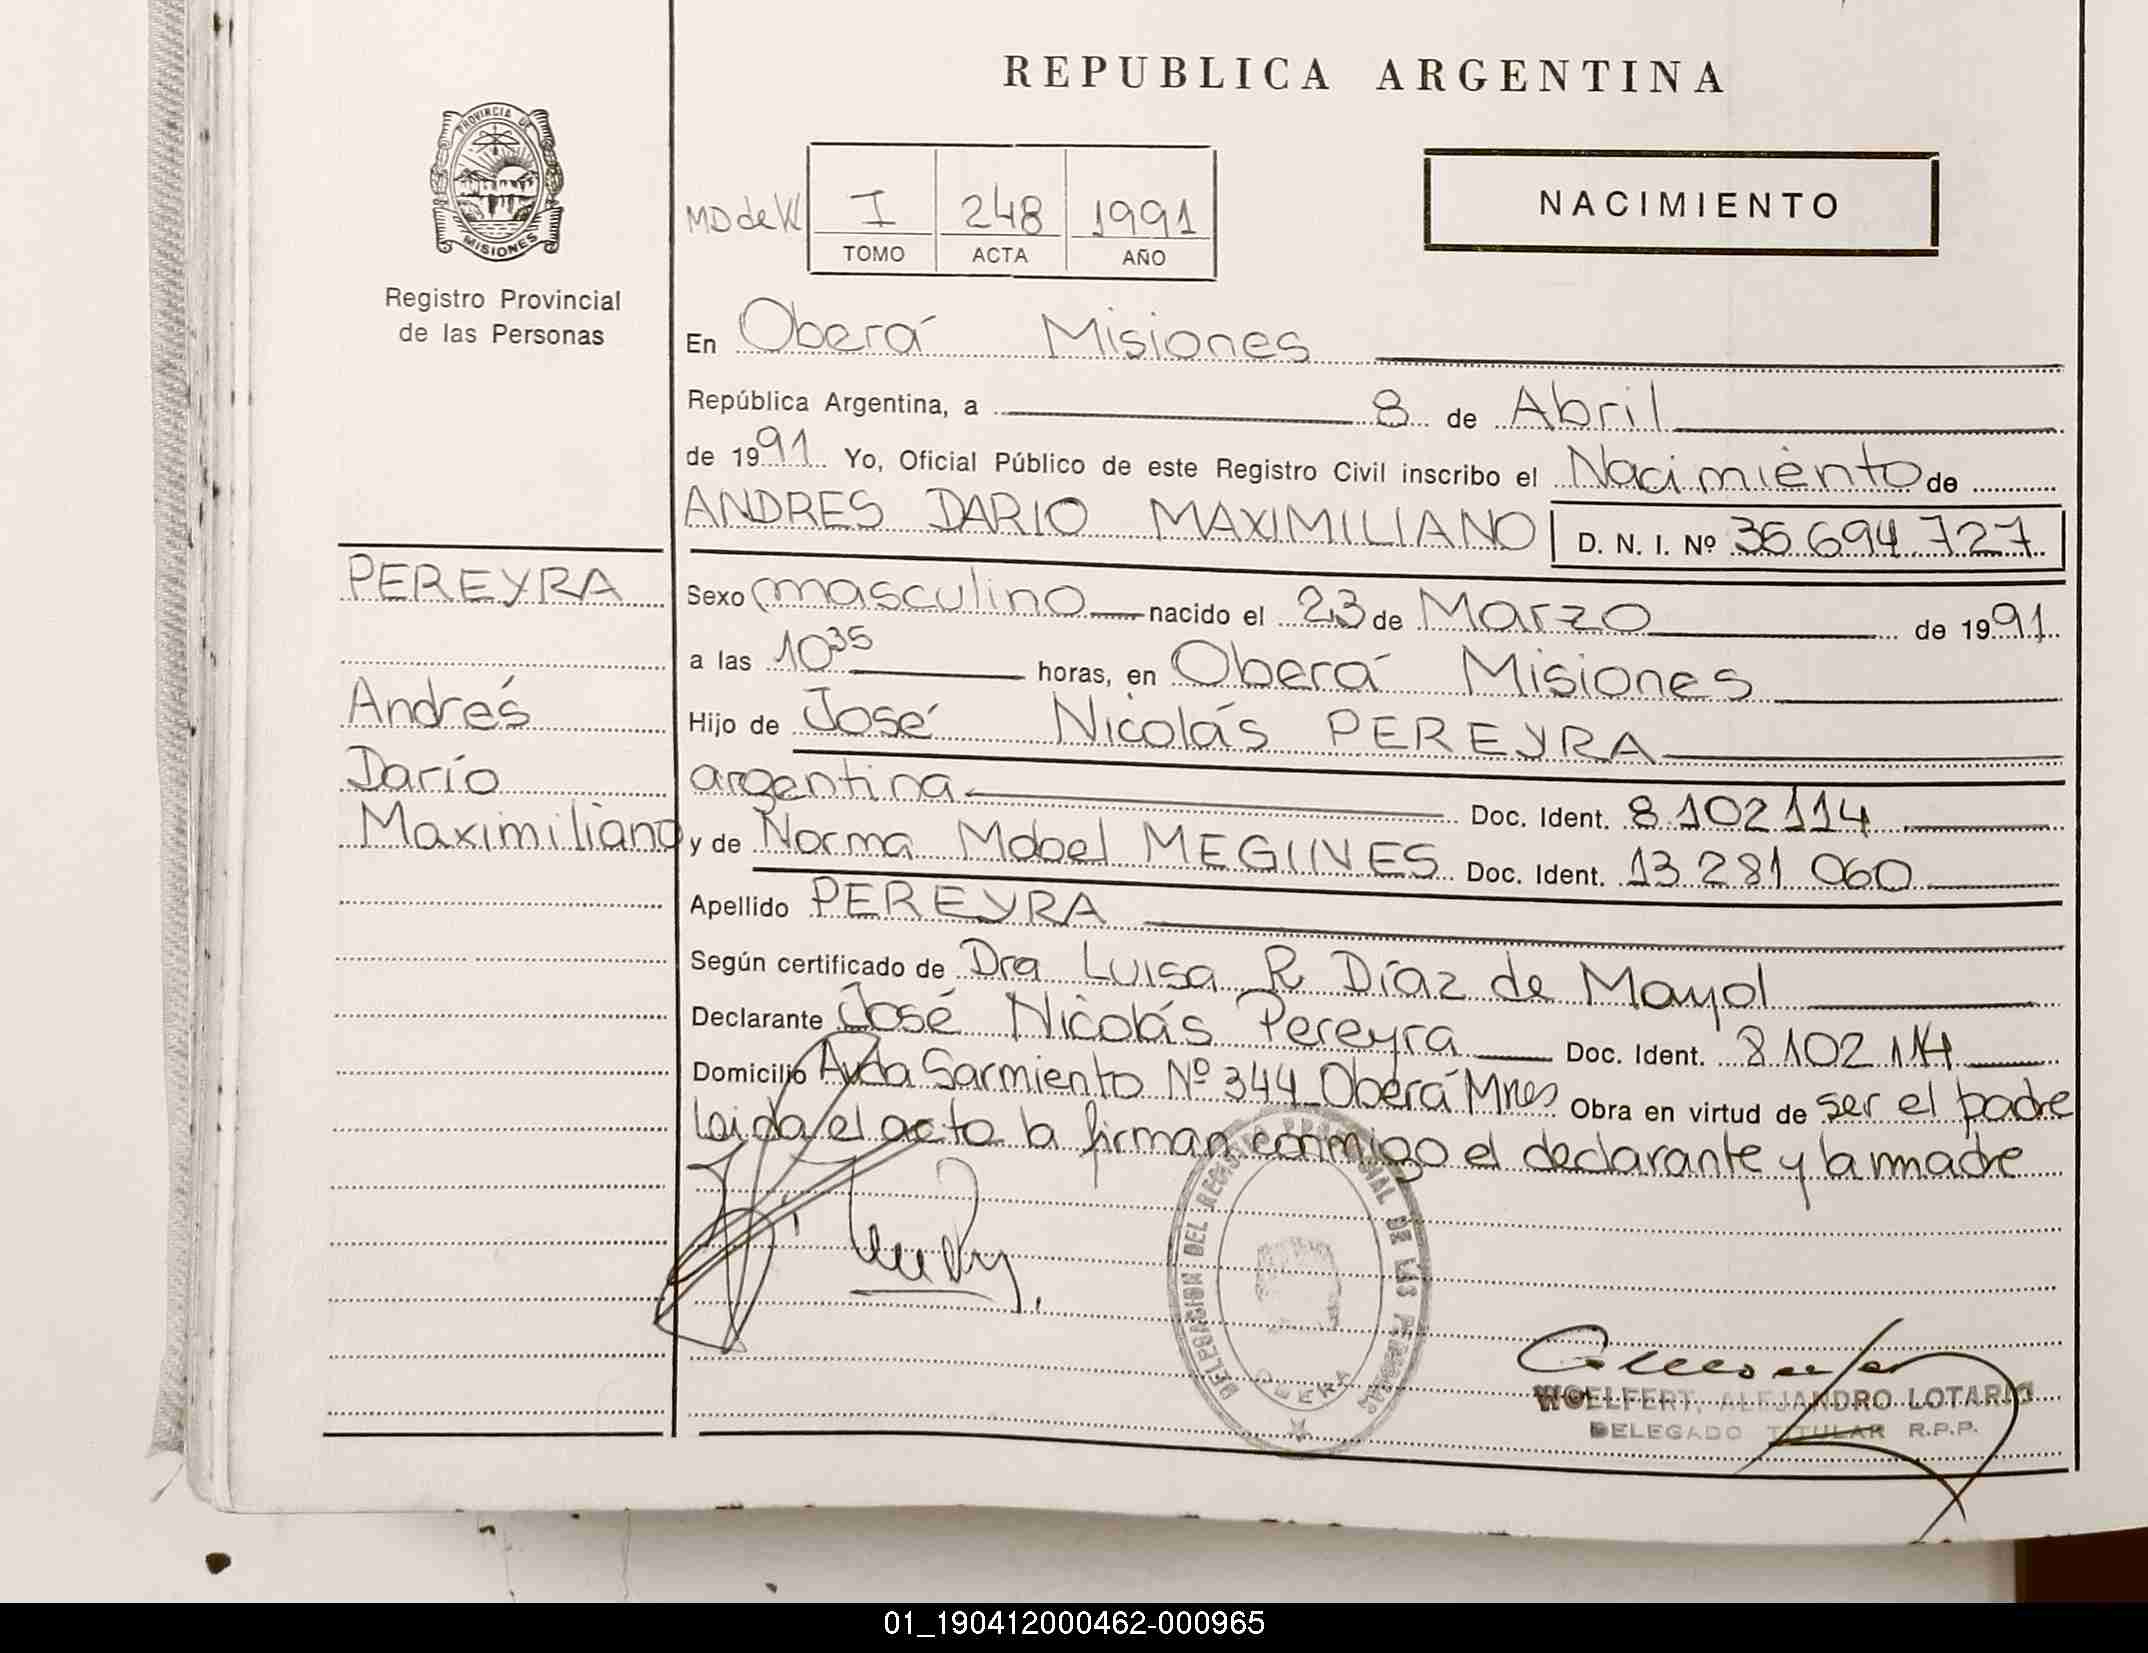 REPUBLICA ARGENTINA
PROVINCIA DE
MISIONES
Registro Provincial
de las Personas
MD de W
I 248 1991
TOMO ACTA AÑO
NACIMIENTO
En Oberá Misiones
República Argentina, a 8 de Abril
de 1991 Yo, Oficial Público de este Registro Civil inscribo el Nacimiento de
ANDRES DARIO MAXIMILIANO D. N. I. Nº 36 694 727
PEREYRA
Andrés
Darío
Maximiliano
Sexo masculino nacido el 23 de Marzo de 1991
a las 10 35 horas, en Oberá Misiones
Hijo de José Nicolás PEREYRA
argentina Doc. Ident. 8 102 114
y de Norma Mabel Doc. Ident. 13 281 060
Apellido PEREYRA
Según certificado de Dra Luisa R Díaz de Mayol
Declarante José Nicolás Pereyra Doc. Ident. 8 102 114
Domicilio Avda Sarmiento Nº 344 Oberá Mnes Obra en virtud de ser el padre
Leida el acto la firman conmigo el declarante y la madre
DELEGACION DEL REGISTRO PROVINCIAL DE LAS PERSONAS
OBERA
WOELFERT, ALEJANDRO LOTARIO
DELEGADO TITULAR R.P.P.
01_190412000462-000965